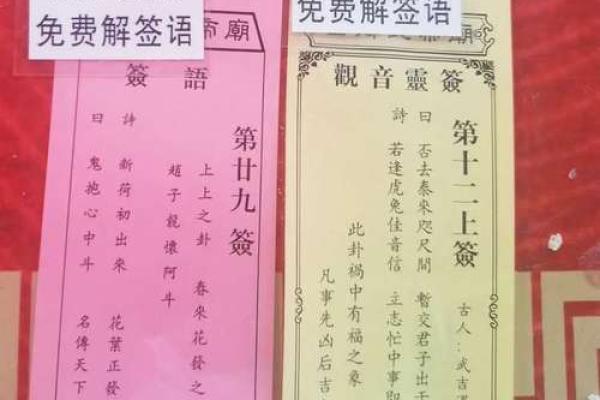 免费解签语
帝廟
簽語
第廿九簽
上上之卦 春來花發之
趙子龍懷阿斗
詩 新荷初出來 花葉正發
曰 鬼抱心中斗 名傳天下
免费解签语
廟
觀音靈簽
第十二上簽
古人:武吉遇
曰 否去泰來咫尺間 暫交君子出于
詩 若逢虎兔佳音信 立志忙中事即
此卦禍中有福之象
凡事先凶后吉